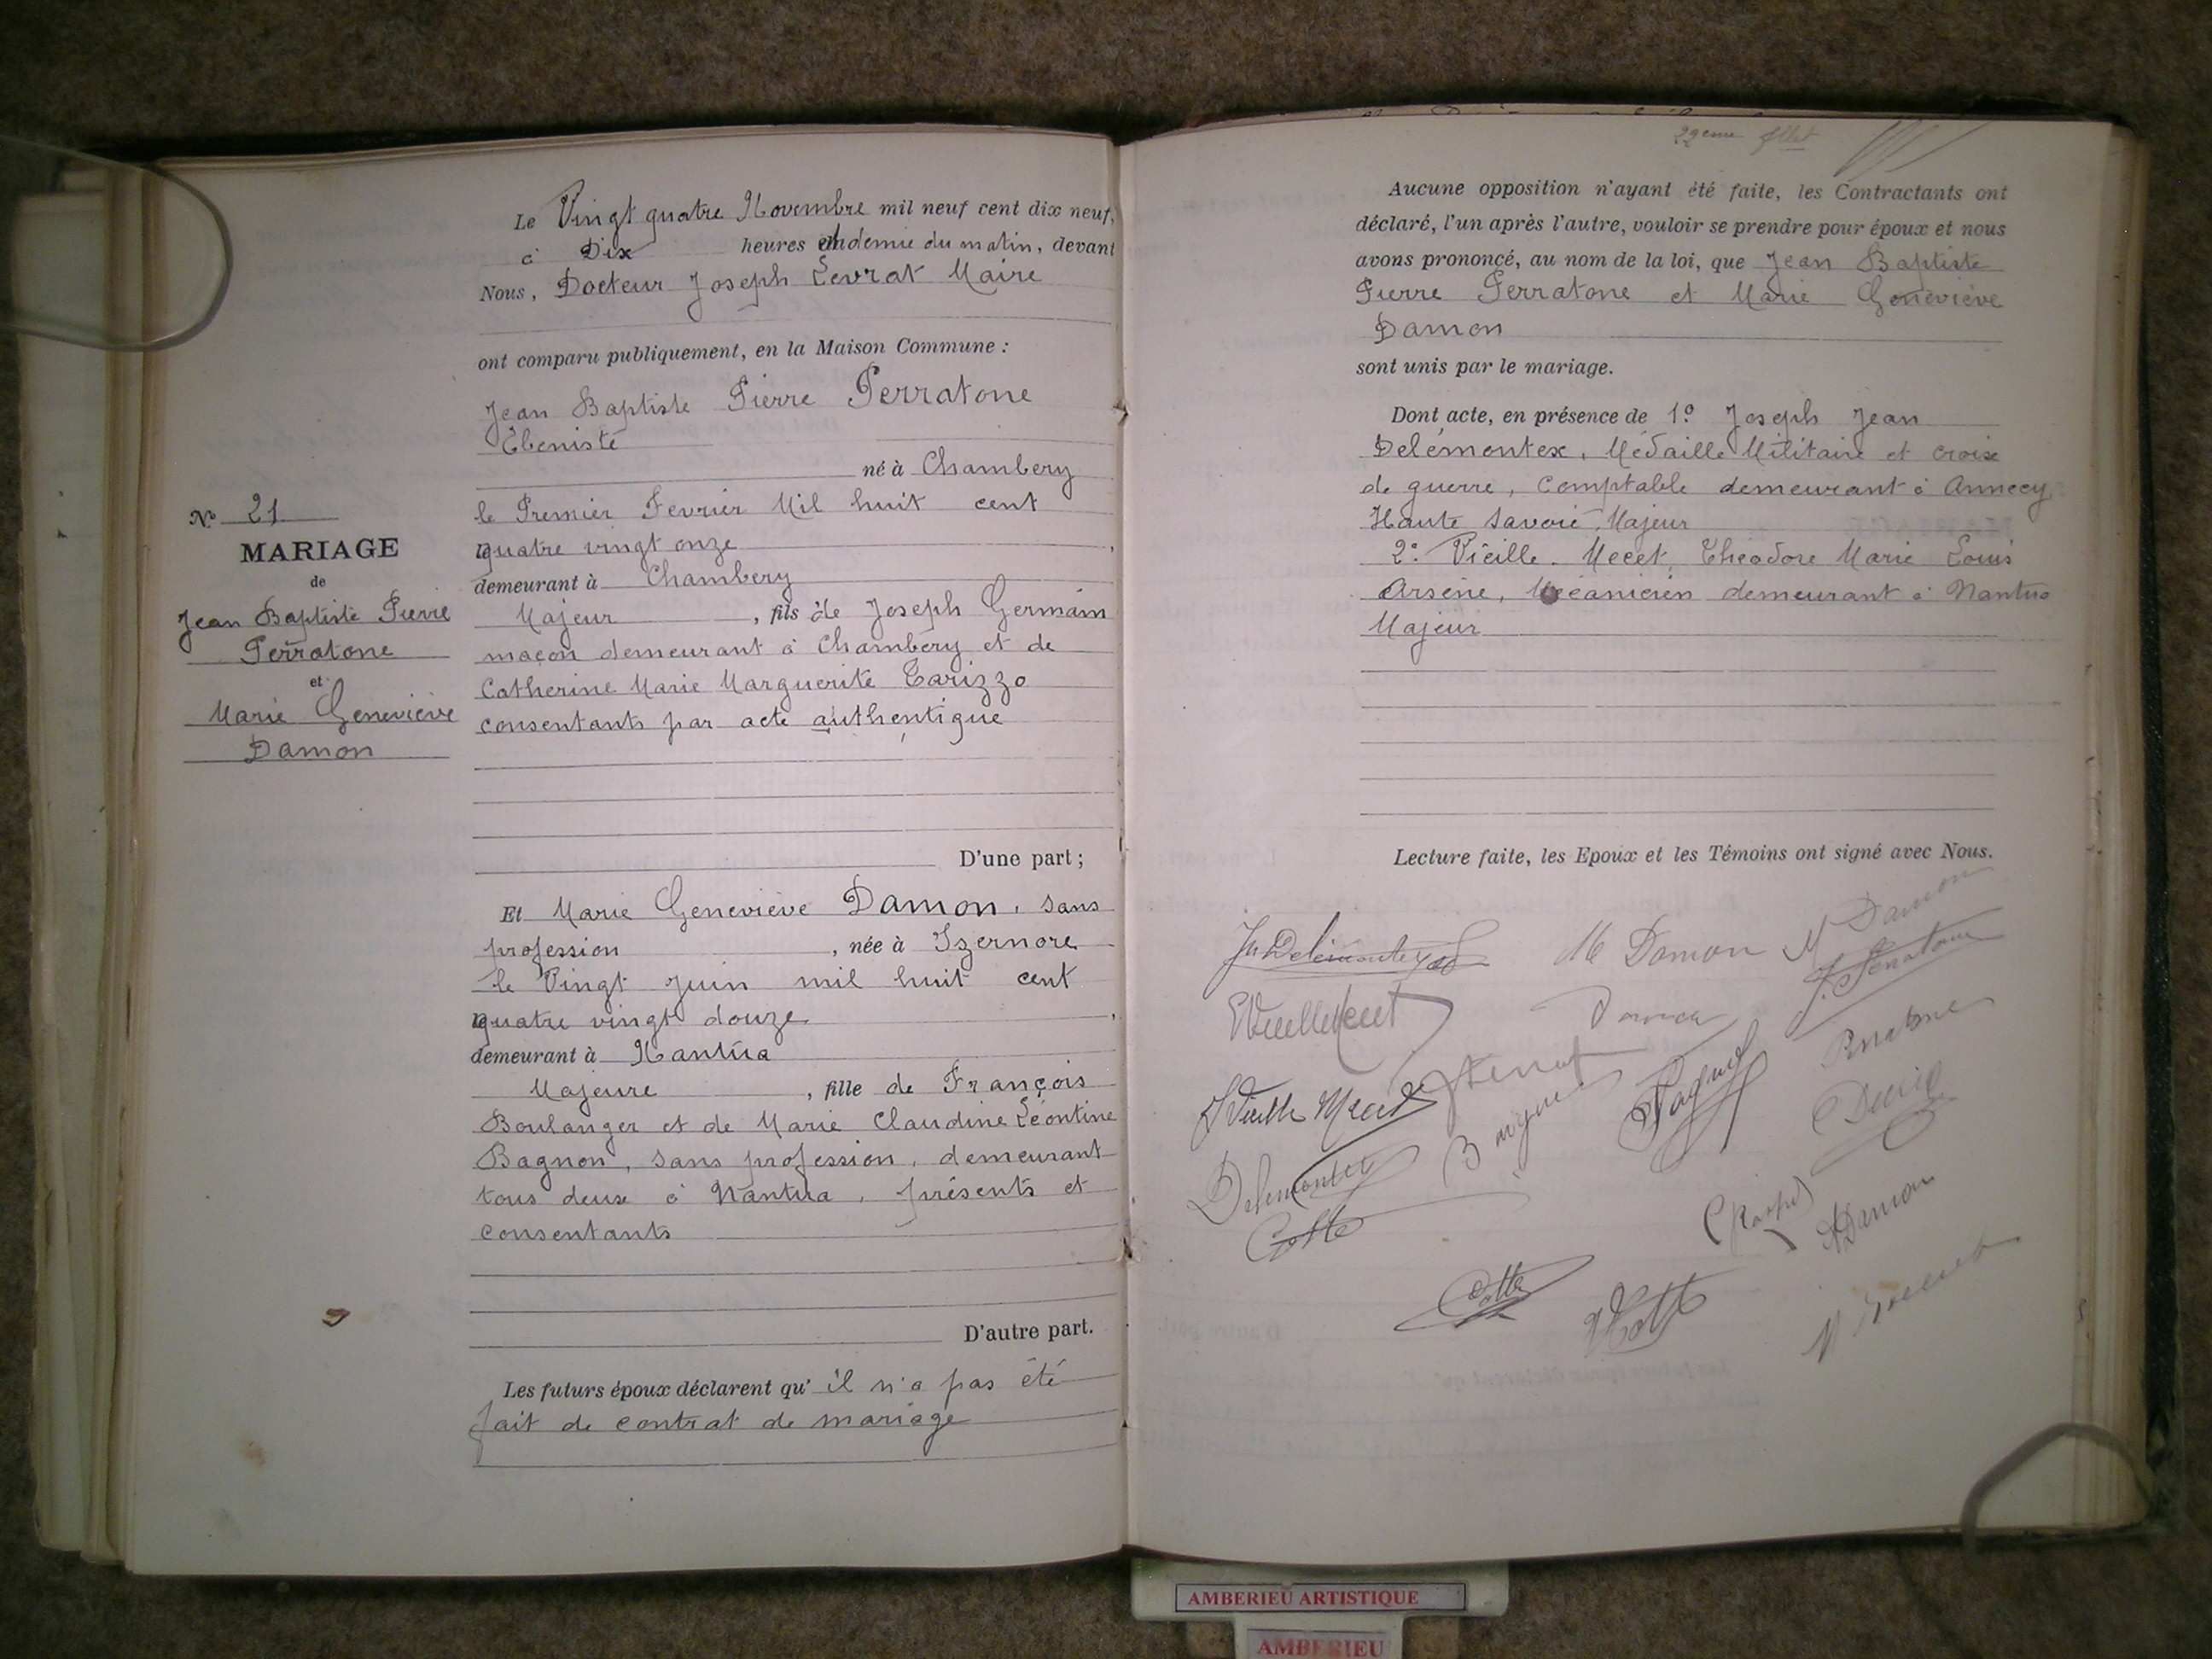 Le Vingt quatre Novembre mil neuf cent dix neuf,
à Dix heures et demie du matin, devant
Nous, Docteur Joseph Levrat Maire
ont comparu publiquement, en la Maison Commune :
Jean Baptiste Pierre Perratone
Ebeniste
né à Chambery
le Premier Fevrier Mil huit cent
quatre vingt onze
demeurant à Chambery
Majeur, fils de Joseph Germain
maçon demeurant à Chambéry et de
Catherine Marie Marguerite Tarizzo
consentants par acte authentique
D'une part ;
Et Marie Geneviève Damon, sans
profession, née à Izernore
le Vingt Juin mil huit cent
quatre vingt douze,
demeurant à Nantua
Majeure, fille de François
Boulanger et de Marie Claudine Léontine
Bagnon, sans profession, demeurant
tous deux à Nantua, présents et
consentants
D'autre part.
Les futurs époux déclarent qu' il n'a pas été
fait de contrat de mariage
No 21
MARIAGE
de
Jean Baptiste Pierre
Perratone
et
Marie Geneviève
Damon
Aucune opposition n'ayant été faite, les Contractants ont
déclaré, l'un après l'autre, vouloir se prendre pour époux et nous
avons prononcé, au nom de la loi, que Jean Baptiste
Pierre Perratone et Marie Geneviève
Damon
sont unis par le mariage.
Dont acte, en présence de 1º Joseph Jean
Delémontex, Médaille Militaire et croix
de guerre, Comptable demeurant à Annecy
Haute Savoie, Majeur
2º Vieille-Mecet, Théodore Marie Louis
Arsène, Mécanicien demeurant à Nantua
Majeur
Lecture faite, les Epoux et les Témoins ont signé avec Nous.
Delémontex M Damon M Damon
Perratone
Delémontex
Cotte
Damon
Cotte
AMBERIEU ARTISTIQUE
AMBERIEU